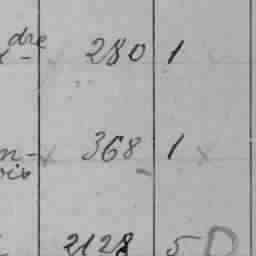 dre 280 1
n- 368 1
ois
2128 5 D